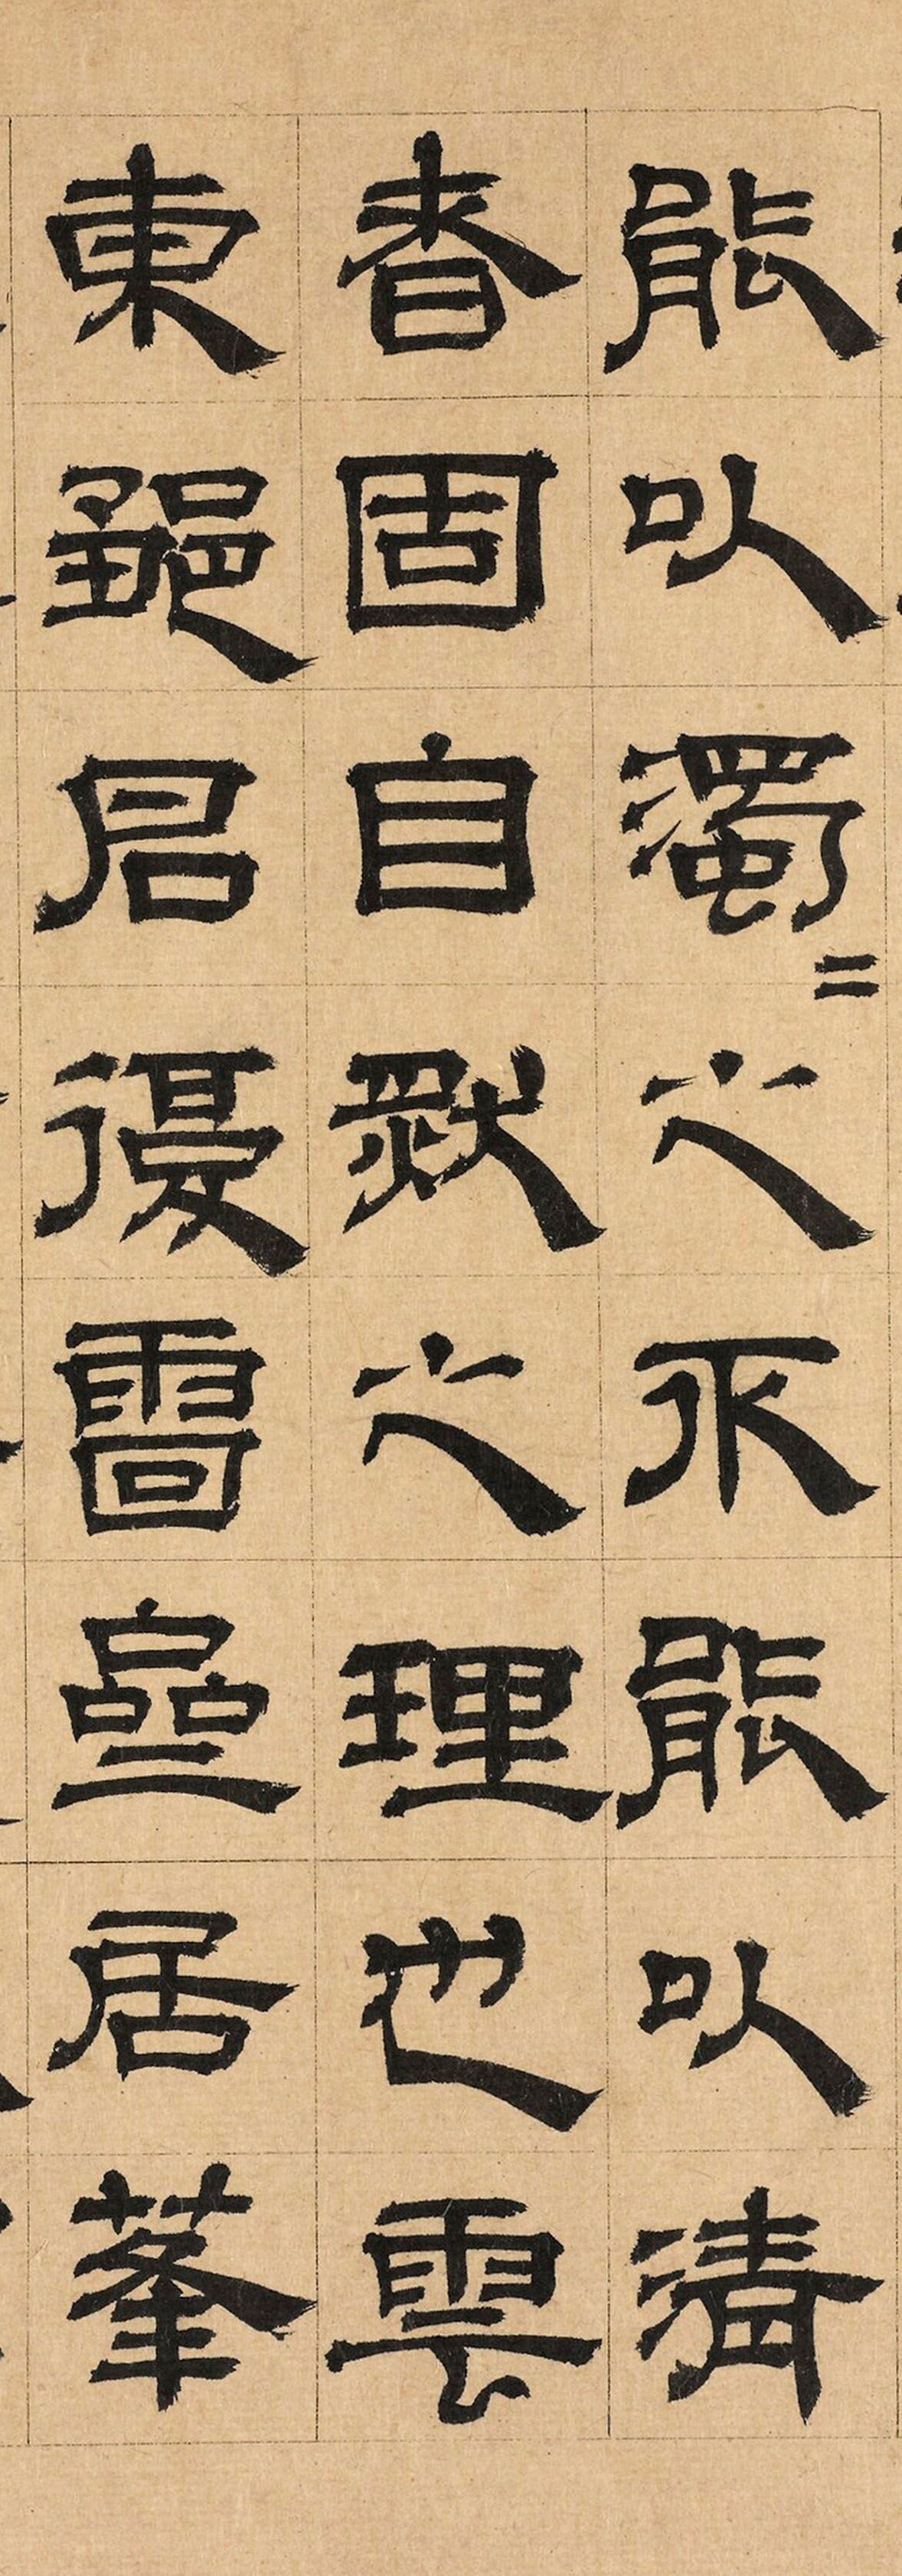 能以濁〻之不能以清
者固自然之理也雲
東郵君復雷居